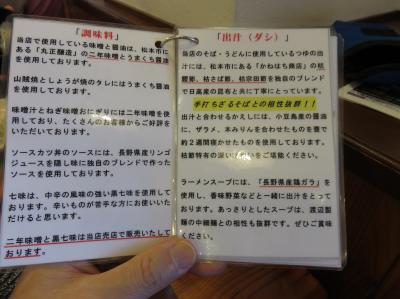 「調味料」
当店で使用している味噌と醤油は、松本市に
ある「丸正醸造」の二年味噌とうまくち醤油
を使用しております。
山賊焼としょうが焼のタレにはうまくち醤油
を使用しております。
味噌汁とねぎ味噌おにぎりには二年味噌を使
用しており、たくさんのお客様からご好評を
いただいております。
ソースカツ丼のソースには、長野県産リンゴ
ジュースを隠し味に独自のブレンドで作った
ソースを使用しております。
七味は、中辛の風味の強い黒七味を使用して
おります。辛いものが苦手な方にお使いいた
だけると思います。
二年味噌と黒七味は当店売店で販売いたして
おります。
「出汁（ダシ）」
当店のそば・うどんに使用しているつゆの出
汁には、松本市にある「かねはち商店」の枯
鯖節、枯さば節、枯宗田節を独自のブレンド
で日高産の昆布と共に丁寧にとっています。
手打ちざるそばとの相性抜群！！
出汁と合わせるかえしには、小豆島産の醤油
に、ザラメ、本みりんを合わせたものを甕で
約2週間寝かせたものを使用しております。
枯節特有の深い味わいをご堪能ください。
ラーメンスープには、「長野県産鶏ガラ」を
使用し、香味野菜などと一緒に出汁をとって
おります。あっさりとしたスープは、渡辺製
麺の中細麺との相性も抜群です。ぜひご賞味
ください。